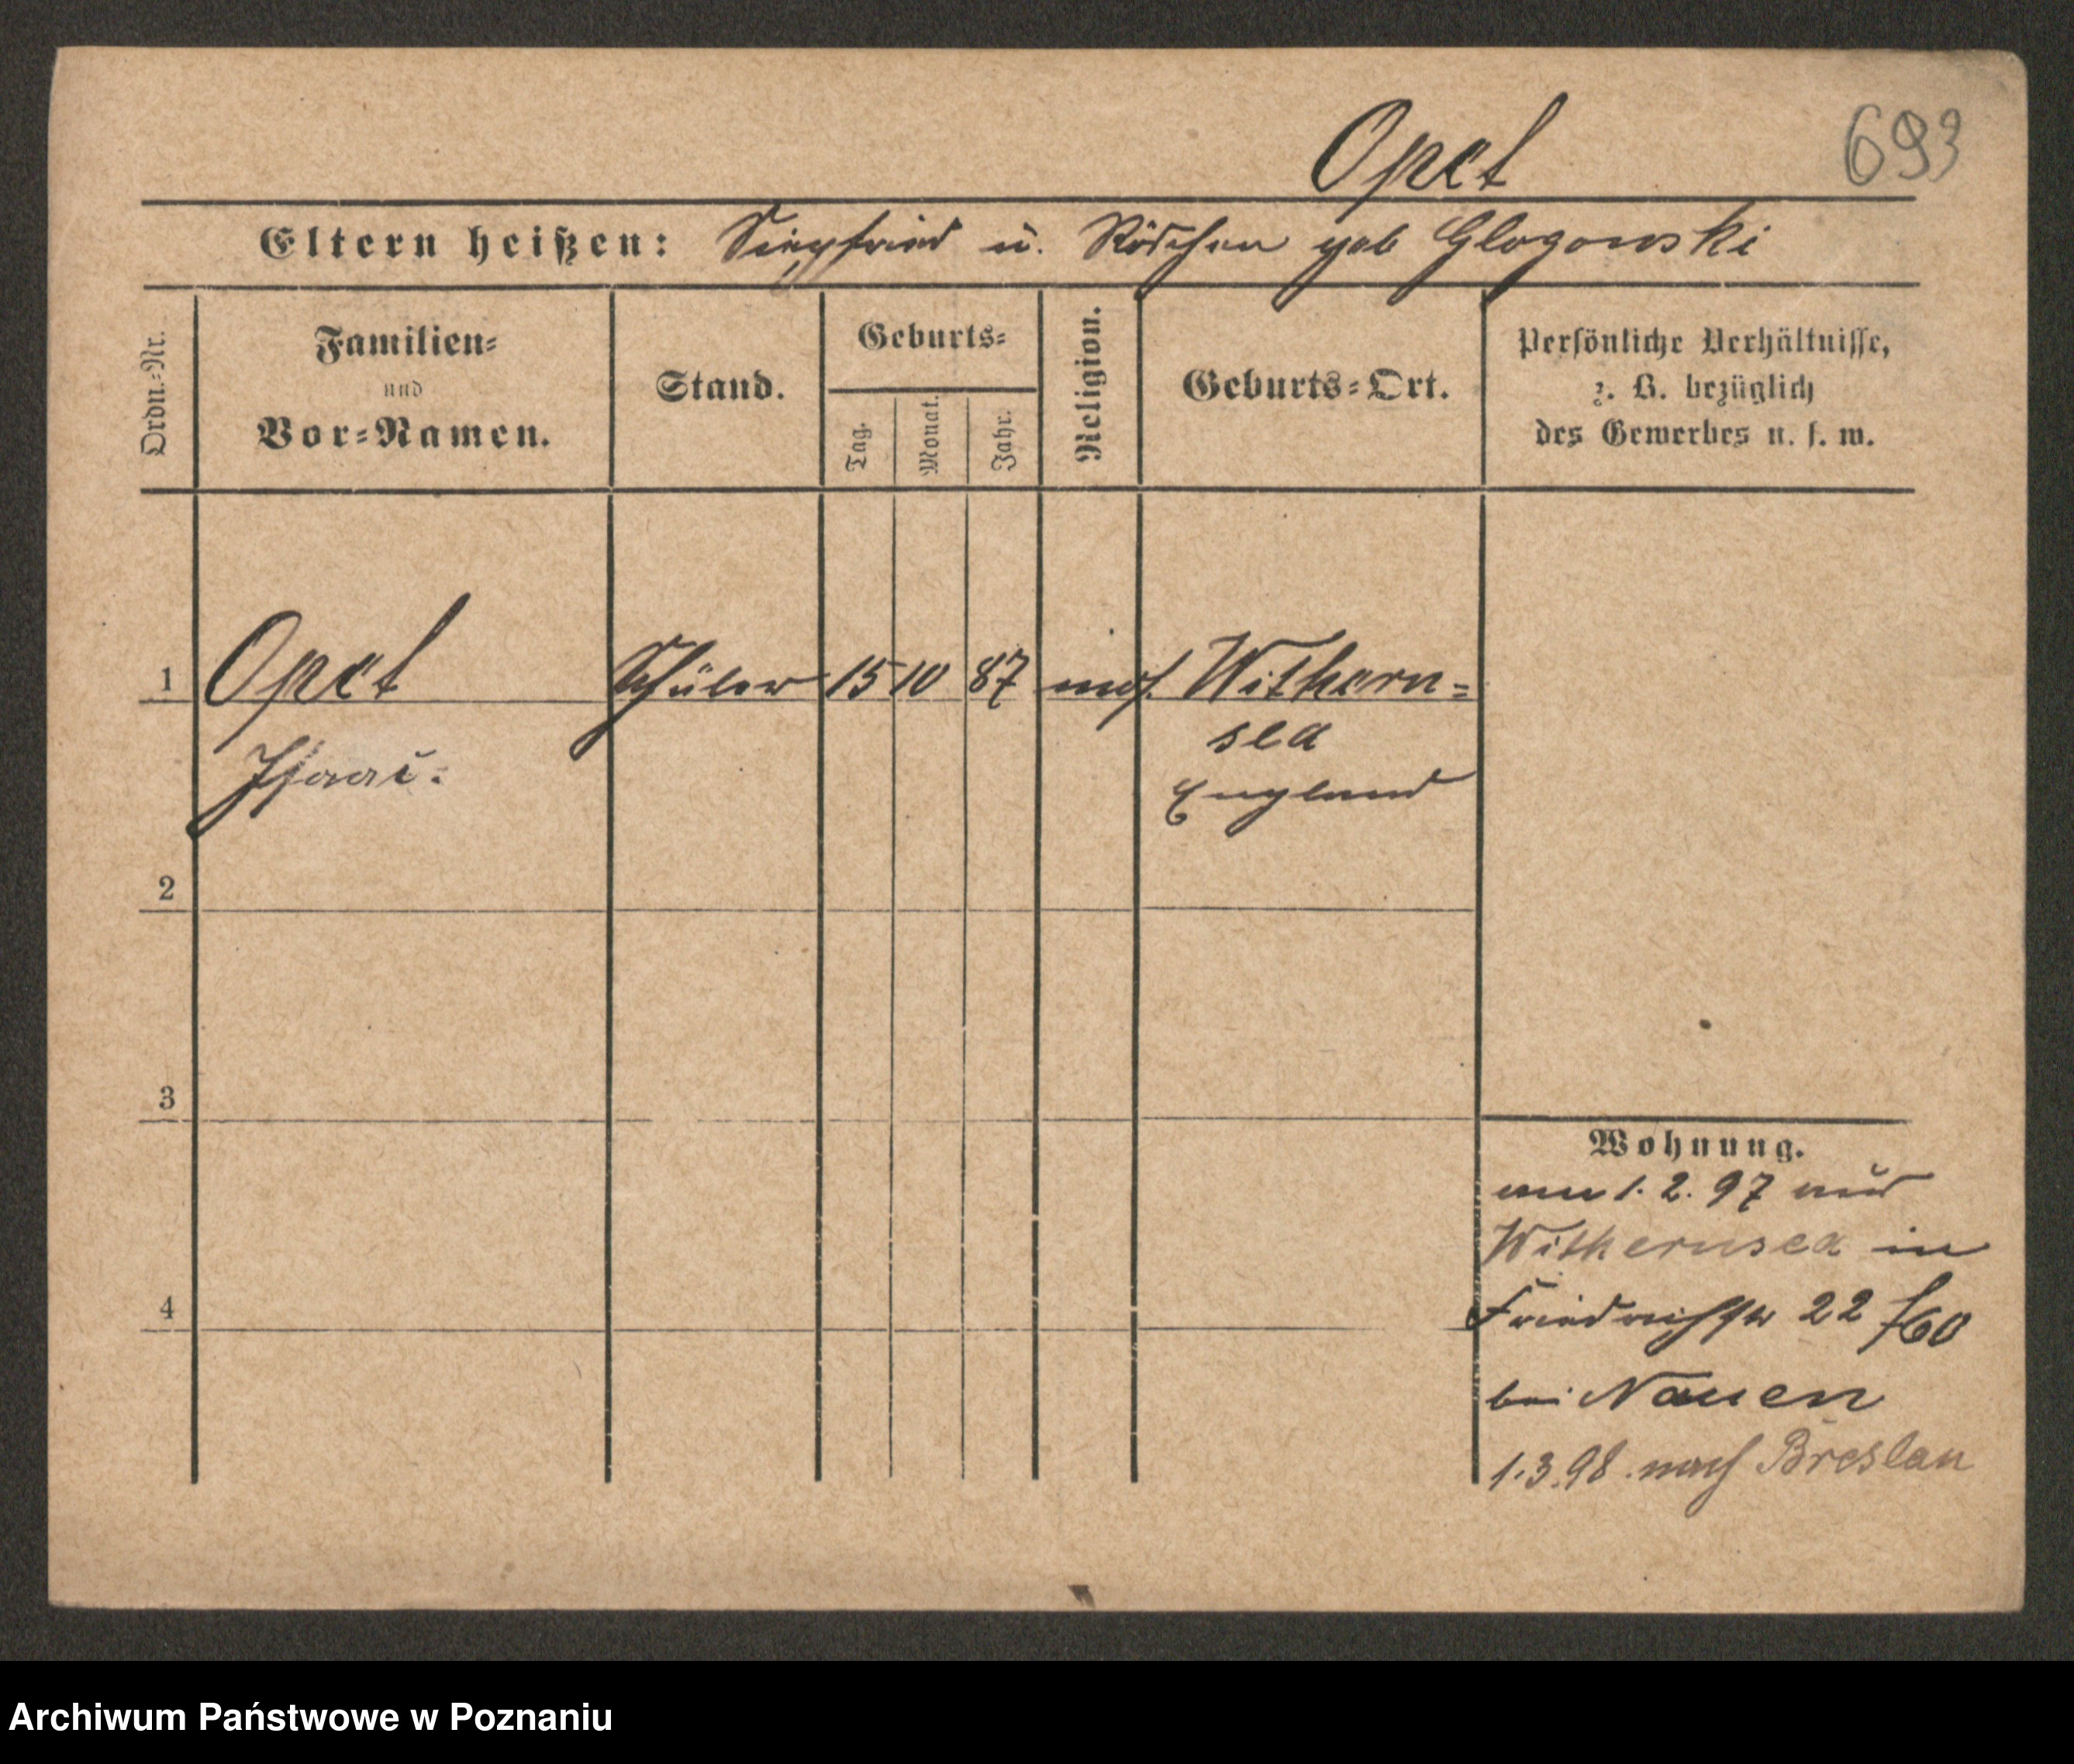 Opet 693
Eltern heißen: Siegfried u. Röschen geb Glogowski
Ordn.-Nr.
Familien-
und
Vor-Namen.
Stand.
Geburts-
Tag.
Monat.
Jahr.
Religion.
Geburts-Ort.
Persönliche Verhältnisse,
z. B. bezüglich
des Gewerbes u. s. w.
1 Opet Schüler 15 10 87 mos. Withern-
sea
Isaac.
England
2
3
4
Wohnung.
am 1. 2. 97 aus
Withernsea in
Friedrichstr 22
bei Nauen
1.3.98. nach Breslau
Archiwum Państwowe w Poznaniu